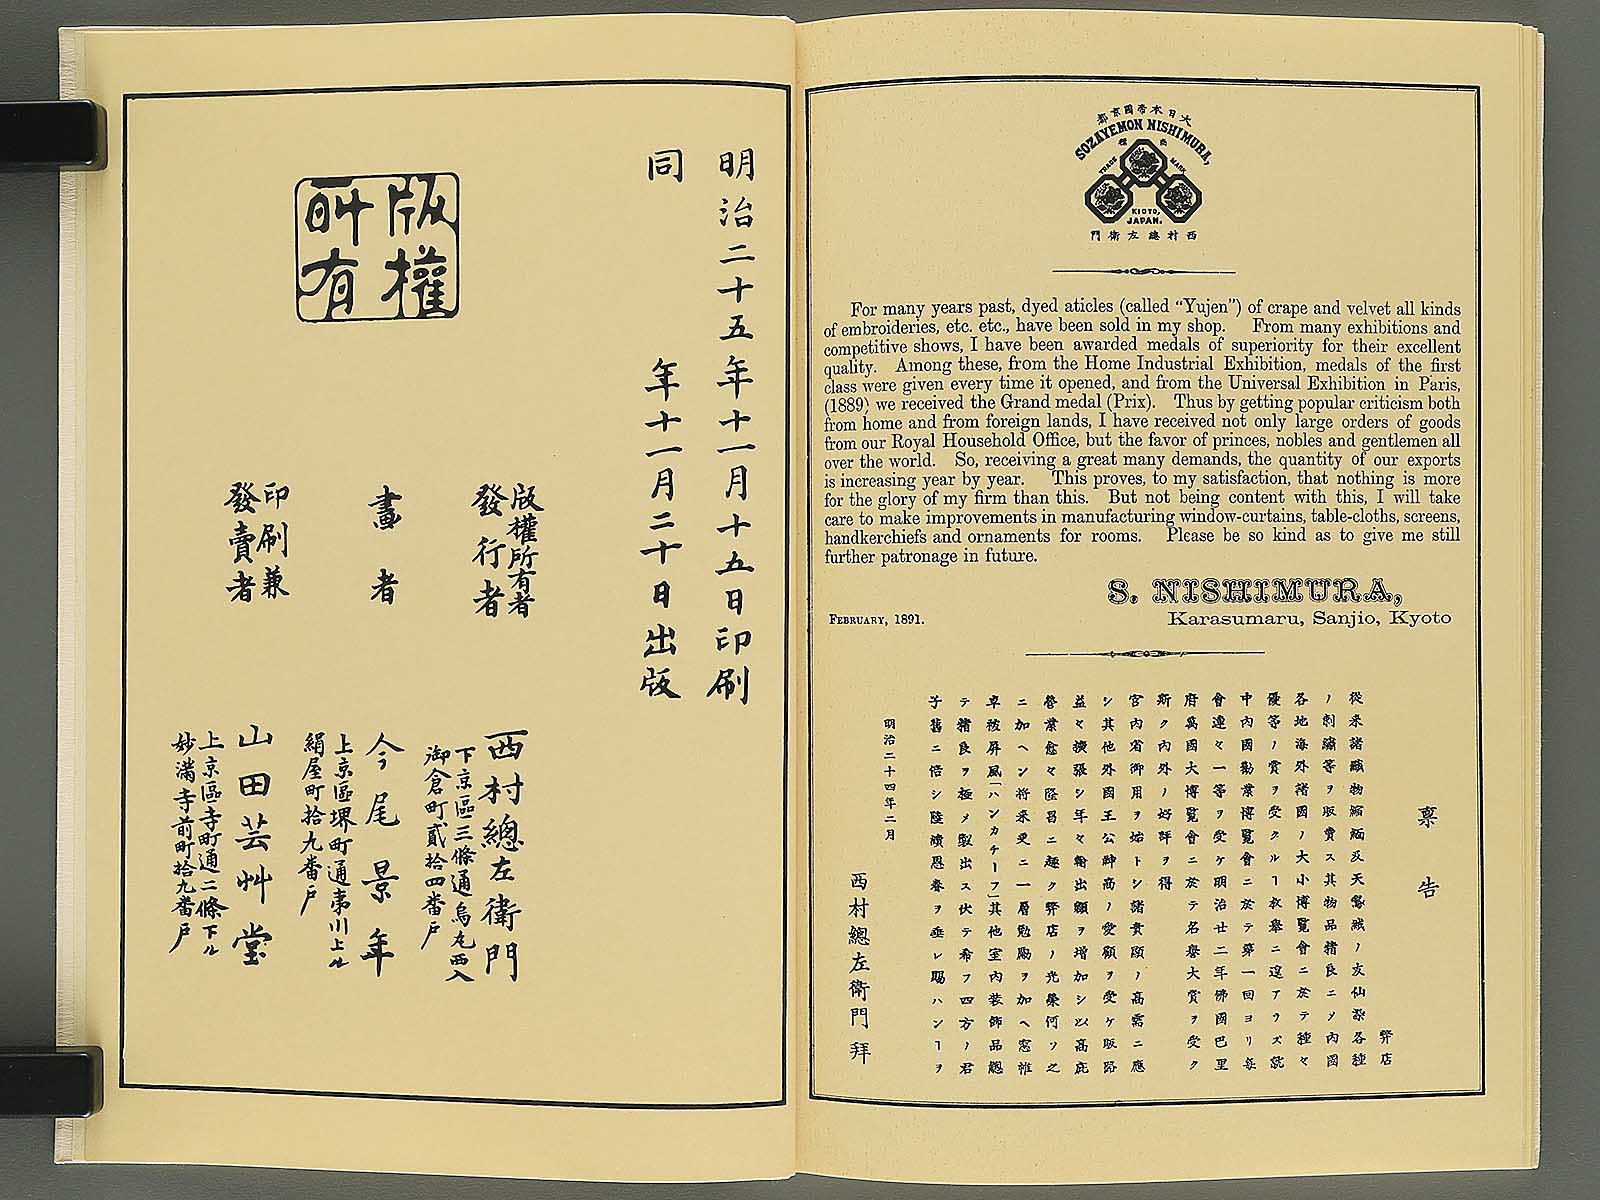 大日本帝國京都
SOZAYEMON NISHIMURA,
商標
TRADE MARK
KIOTO,
JAPAN.
西村總左衛門
For many years past, dyed aticles (called “Yujen”) of crape and velvet all kinds
of embroideries, etc. etc., have been sold in my shop. From many exhibitions and
competitive shows, I have been awarded medals of superiority for their excellent
quality. Among these, from the Home Industrial Exhibition, medals of the first
class were given every time it opened, and from the Universal Exhibition in Paris,
(1889) we received the Grand medal (Prix). Thus by getting popular criticism both
from home and from foreign lands, I have received not only large orders of goods
from our Royal Household Office, but the favor of princes, nobles and gentlemen all
over the world. So, receiving a great many demands, the quantity of our exports
is increasing year by year. This proves, to my satisfaction, that nothing is more
for the glory of my firm than this. But not being content with this, I will take
care to make improvements in manufacturing window-curtains, table-cloths, screens,
handkerchiefs and ornaments for rooms. Please be so kind as to give me still
further patronage in future.
S. NISHIMURA,
Karasumaru, Sanjio, Kyoto
FEBRUARY, 1891.
禀告
弊店
從來諸織物縮緬及天鵞絨ノ友仙染各種
ノ刺繍等ヲ販賣ス其物品精良ニメ内國
各地海外諸國ノ大小博覧會ニ於テ種々
優等ノ賞ヲ受クルヿ枚舉ニ遑アラズ就
中内國勸業博覧會ニ於テ第一回ヨリ毎
會連々一等ヲ受ケ明治廿二年佛國巴里
府萬國大博覧會ニ於テ名譽大賞ヲ受ク
斯ク内外ノ好評ヲ得
宮内省御用ヲ始トシ諸貴顕ノ高需ニ應
シ其他外國王公紳商ノ愛顧ヲ受ケ販路
益々擴張シ年々輸出額ヲ増加シ以高庇
營業愈々隆昌ニ趣ク弊店ノ光榮何ソ之
ニ加ヘン将来更ニ一層勉勵ヲ加ヘ窓帷
卓被屏風「ハンカチーフ」其他室内装飾品總
テ精良ヲ極メ製出ス伏テ希フ四方ノ君
子舊ニ倍シ陸續恩眷ヲ垂レ賜ハンヿヲ
明治二十四年二月
西村總左衛門拜
明治二十五年十一月十五日印刷
同年十一月二十日出版
版權所有
版權所有者
發行者
西村總左衛門
下京區三條通烏丸西入
御倉町貳拾四番戸
畫者
今尾景年
上京區堺町通夷川上ル
絹屋町拾九番戸
印刷兼
發賣者
山田芸艸堂
上京區寺町通二條下ル
妙滿寺前町拾九番戸